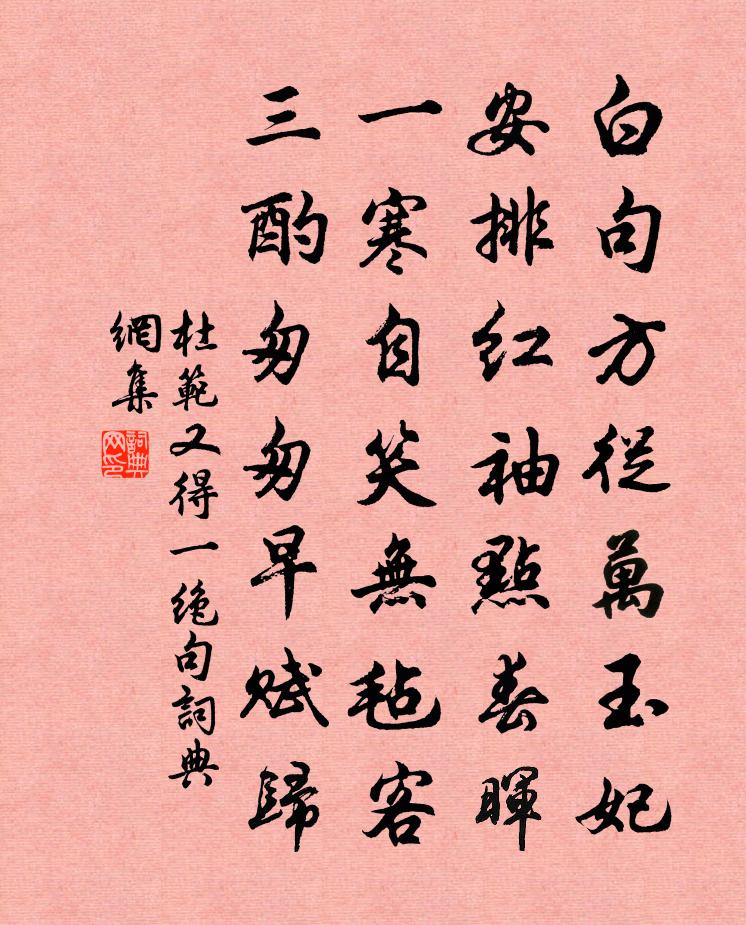 白句方從萬玉妃
安排紅袖點春暉
一寒自笑無毡客
三酌匆匆早賦歸
杜範又得一絶句詞典
網集
詞典
网印